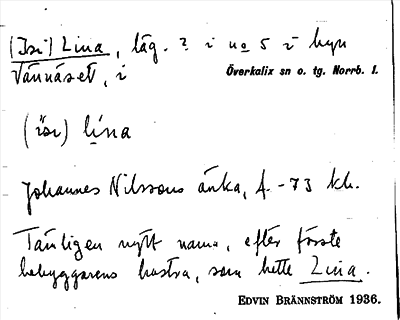 (Isi) Lina, läg. 2 i no 5 i byn
Vännäset, i Överkalix sn o. tg. Norrb. l.
(isi) lina
Johannes Nilssons änka, f. -73 kh.
Tämligen nytt namn, efter förste
bebyggarens hustru, som hette Lina.
EDVIN BRÄNNSTRÖM 1936.